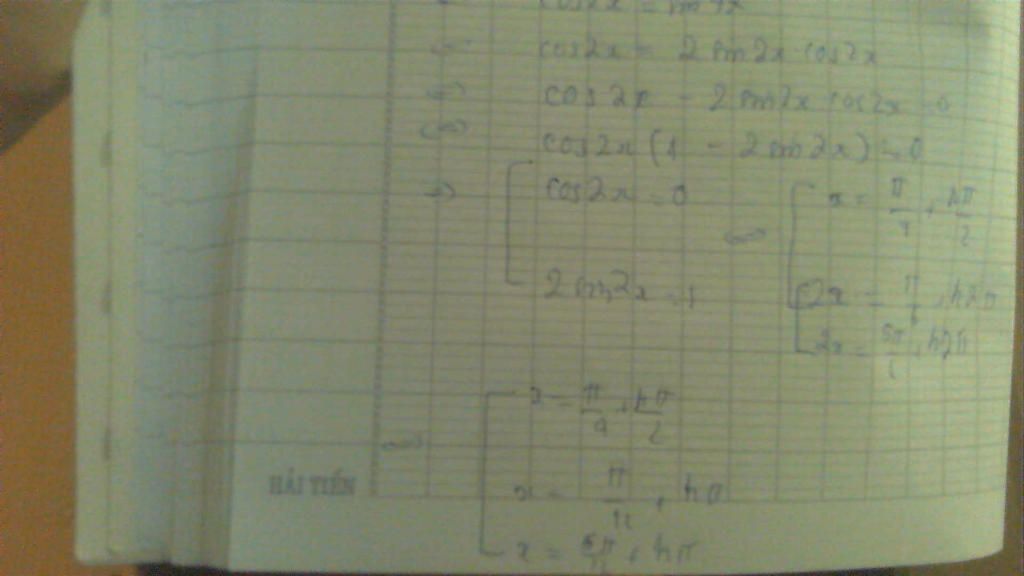 cos2x = sin4x
cos2x = 2 sin2x cos2x
⇔ cos2x - 2 sin2x cos2x = 0
⇔ cos2x (1 - 2 sin2x) = 0
⇔ cos2x = 0 ⇔ x = π/4 + kπ/2
2 sin2x = 1 2x = π/6 + k2π
2x = 5π/6 + k2π
⇔ x = π/4 + kπ/2
x = π/12 + kπ
x = 5π/12 + kπ
HẢI TIẾN